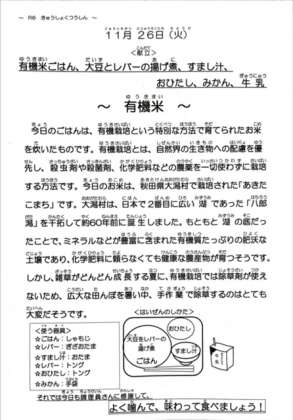 ～ R6 きゅうしょくつうしん ～
11月26日(火)
<献立>
有機米ごはん、大豆とレバーの揚げ煮、すまし汁、
おひたし、みかん、牛乳
～ 有機米 ～
今日のごはんは、有機栽培という特別な方法で育てられたお米
を炊いたものです。有機栽培とは、自然界の生き物への配慮を優
先し、殺虫剤や殺菌剤、化学肥料などの農薬を一切使わずに栽培
する方法です。今日のお米は、秋田県大潟村で栽培された「あきた
こまち」です。大潟村は、日本で２番目に広い湖であった「八郎
潟」を干拓して約60年前に誕生しました。もともと湖の底だっ
たことで、ミネラルなどが豊富に含まれた有機質たっぷりの肥沃な
土壌であり、化学肥料に頼らなくても健康な農産物が育つそうです。
しかし、雑草がどんどん成長する夏に、有機栽培では除草剤が使え
ないため、広大な田んぼを暑い中、手作業で除草するのはとても
大変だそうです。
<使う器具>
☆ごはん：しゃもじ
☆レバー：ぎざおたま
☆すまし汁：おたま
☆レバー：トング
☆おひたし：トング
☆みかん：手袋
<はいぜんのしかた>
おひたし
大豆とレバーの
揚げ煮
ごはん
すまし汁
それでは今日も調理員さんに感謝して、
よく噛んで、味わって食べましょう！